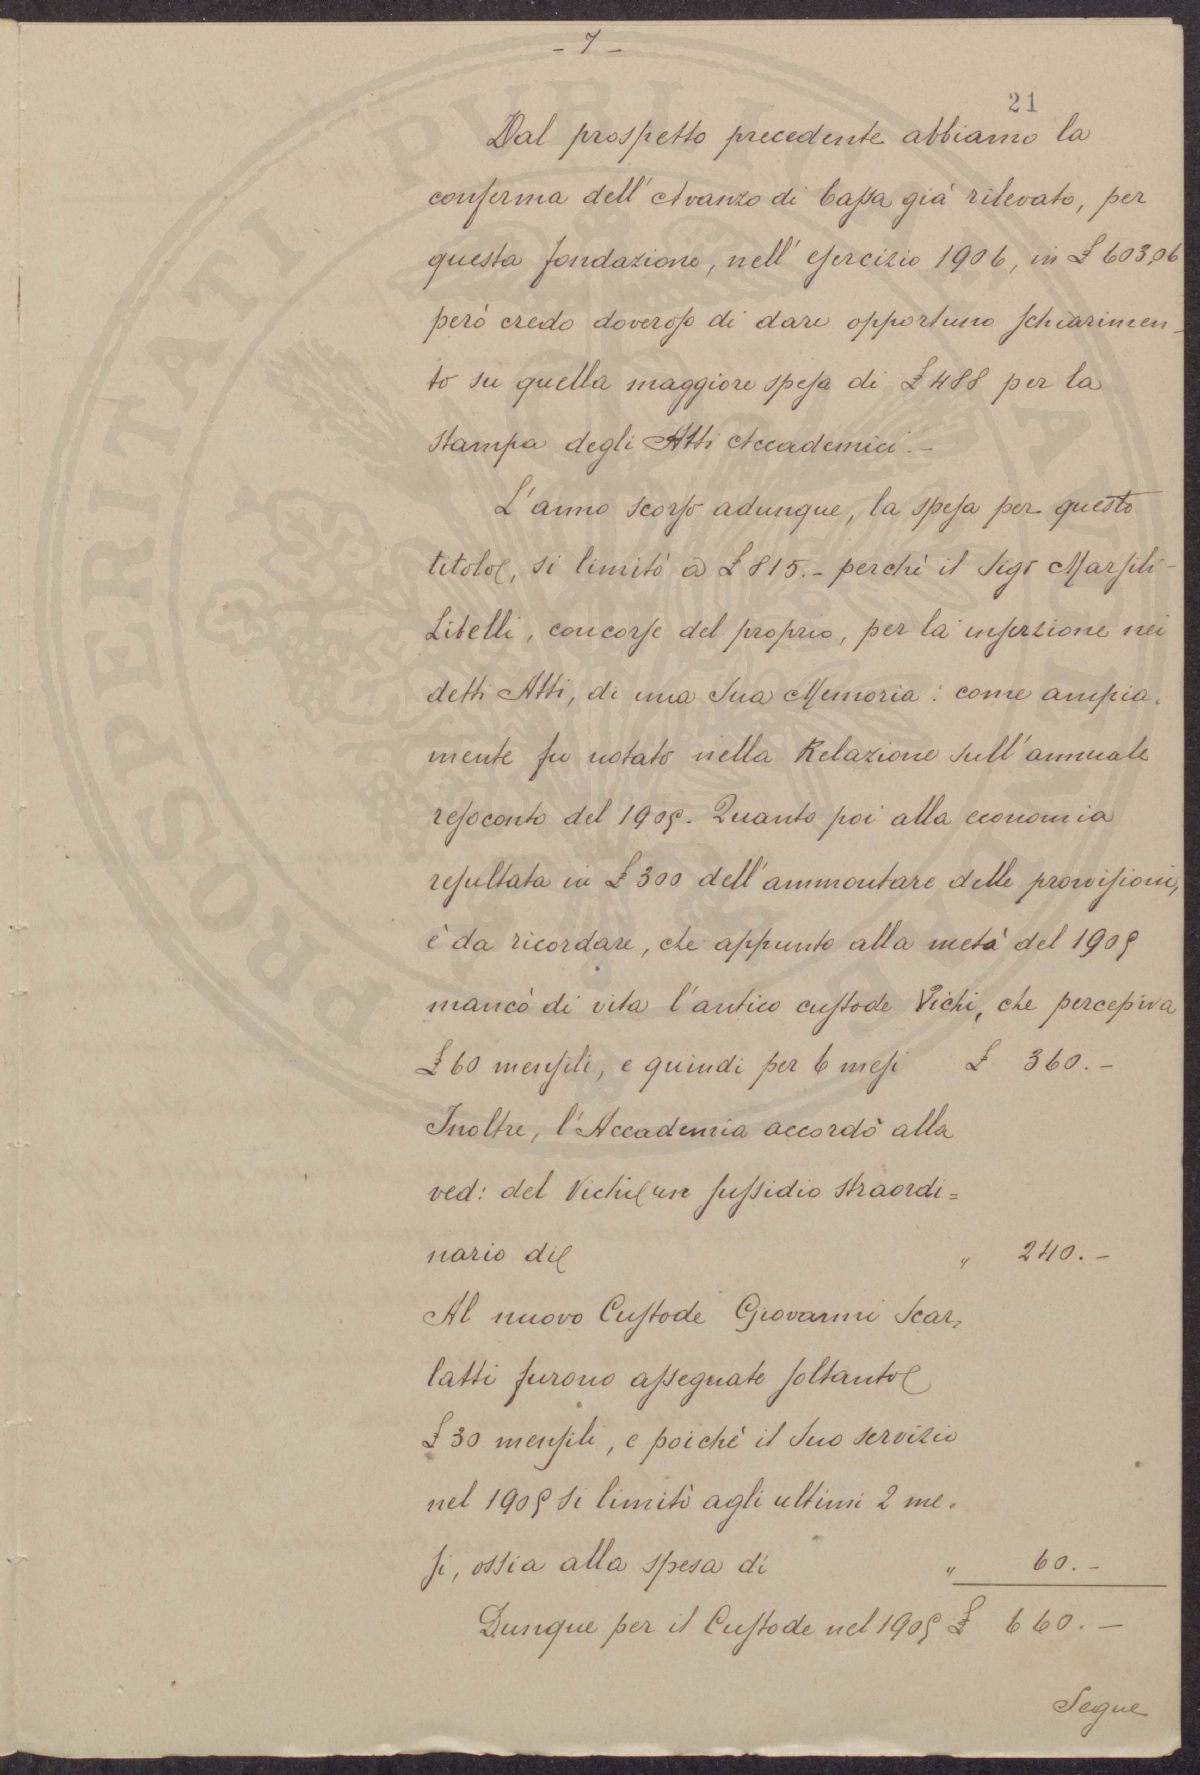 - 7 -
21
Dal prospetto precedente abbiamo la
conferma dell'Avanzo di Cassa già rilevato, per
questa fondazione, nell'esercizio 1906, in £ 603,06
però credo doveroso di dare opportuno schiarimen-
to su quella maggiore spesa di £ 488 per la
stampa degli Atti Accademici.-
L'anno scorso adunque, la spesa per questo
titolo, si limitò a £ 815.- perchè il Sigr Marsili-
Libelli, concorse del proprio, per la inserzione nei
detti Atti, di una Sua Memoria: come ampia-
mente fu notato nella Relazione sull'annuale
resoconto del 1905. Quanto poi alla economia
resultata in £ 300 dell'ammontare delle provvisioni,
è da ricordare, che appunto alla metà del 1905
mancò di vita l'antico custode Vichi, che percepiva
£ 60 mensili, e quindi per 6 mesi £ 360.-
Inoltre, l'Accademia accordò alla
ved: del Vichi un sussidio straordi=
nario di " 240.-
Al nuovo Custode Giovanni Scar-
latti furono assegnate soltanto
£ 30 mensili, e poichè il Suo servizio
nel 1905 si limitò agli ultimi 2 me-
si, ossia alla spesa di " 60.-
Dunque per il Custode nel 1905 £ 660.-
Segue
PROSPERITATI PUBLICAE